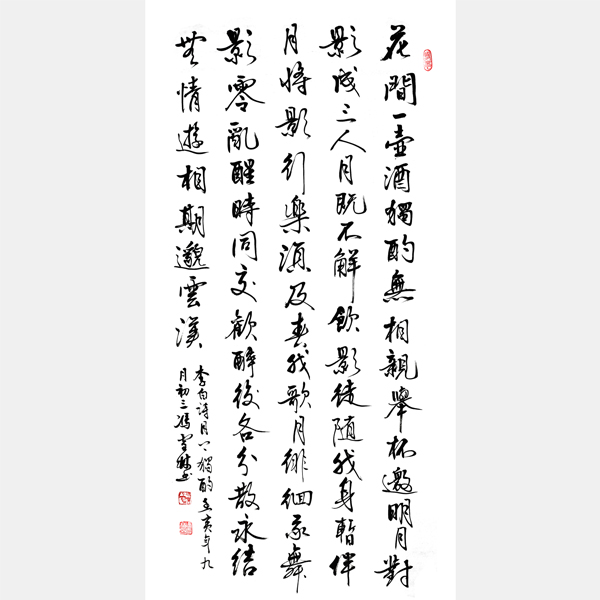 花間一壺酒獨酌無相親舉杯邀明月對
影成三人月既不解飲影徒隨我身暫伴
月將影行樂須及春我歌月徘徊我舞
影零亂醒時同交歡醉後各分散永結
無情遊相期邈雲漢
李白诗月下獨酌己亥年九
月初三馮雪林书